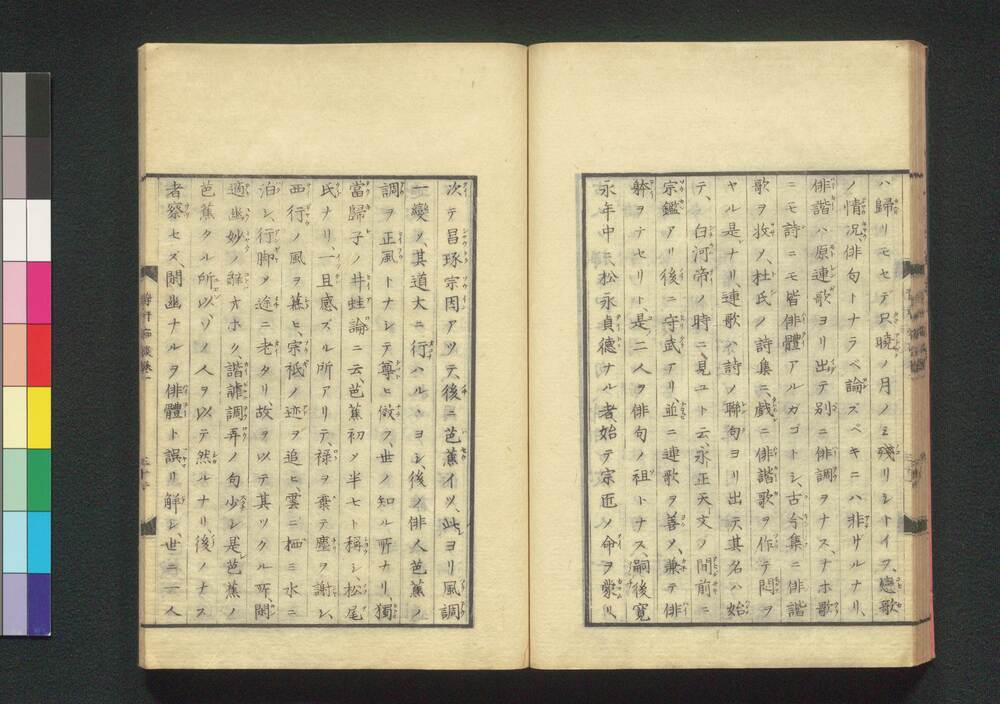 ハ歸リモセデ只曉ノ月ノミ殘リシトイフ戀歌
ノ情况俳句トナラベ論ズベキニハ非ザルナリ、
俳諧ハ原連歌ヨリ出テ別ニ俳調ヲナス、ナホ歌
ニモ詩ニモ皆俳體アルガゴトシ、古今集ニ俳諧
歌ヲ收メ、杜氏ノ詩集ニ戲ニ俳諧歌ヲ作テ悶ヲ
ヤル是ナリ、連歌ハ詩ノ聯句ヨリ出テ其名ハ始
テ、白河帝ノ時ニ見ユト云、永正天文ノ間前ニ
宗鑑アリ後ニ守武アリ、並ニ連歌ヲ善メ、兼テ俳
躰ヲナセリト、是二人ヲ俳句ノ祖トナス、嗣後寛
永年中松永貞德ナル者始テ宗匠ノ命ヲ蒙リ、
次テ昌琢宗因アツテ、後ニ芭蕉イツ、此ヨリ風調
一變メ、其道大ニ行ハル、ヨシ、後ノ俳人芭蕉ノ
調ヲ正風トナシテ尊ヒ傚フ、世ノ知ル所ナリ、獨
當歸子ノ井蛙論ニ云、芭蕉初メ半七ト稱シ、松尾
氏ナリ、一旦感ズル所アリテ、祿ヲ棄テ塵ヲ謝シ、
西行ノ風ヲ慕ヒ、宗祇ノ迹ヲ追ヒ雲ニ栖ミ水ニ
泊シ、行脚ヲ途ニ老タリ、故ヲ以テ其ツクル所、閑
適幽妙ノ辞オホク、諧謔調弄ノ句少シ是芭蕉ノ
芭蕉タル所以、ソノ人ヲ以テ然ルナリ、後ノナス
者察セズ、閑幽ナルヲ俳體ト誤リ解シ、世ニ一人